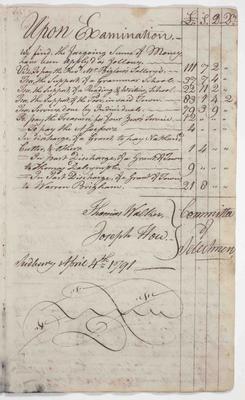 £ S D
Upon Examination.
We find the foregoing Sums of Money
have been Apply'd as follows.
Viz. To pay the Revd. Mr. Bigelows Sallery 111 7 2
For the Support of a Grammar School 37 7 4
For the Support of a Reading & Writing School 22 11 2
For the Support of the Poor in and Town 83 1 4 2
For Service Done by Individuals
To pay the Treasurer for Four years Service 12
To pay the Assessors 4
In discharge of a Grant to pay Nathaniel
Cutler & Others 1 4
In Part Discharge of a Grant of Town
to Thomas 9
In Part Discharge of a Grant of Town
to Warren Brigham 21 8
Thomas Walker Committee
of
Joseph How Selectmen
Sudbury April 4th. 1791